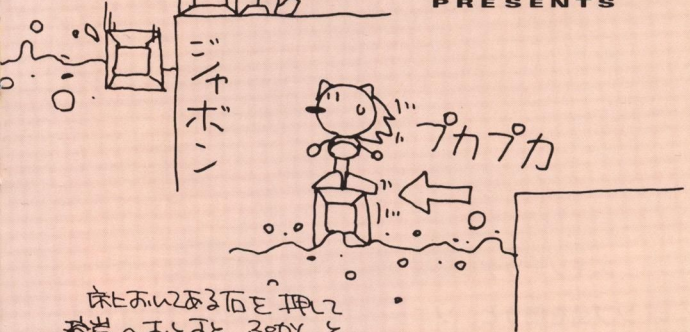 PRESENTS
ジャボン
プカプカ
床上おいてある石を押して